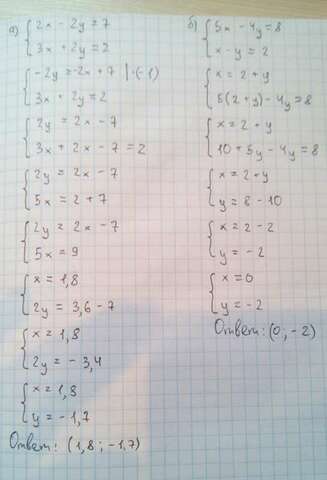 а) { 2x - 2y = 7
3x + 2y = 2
{ -2y = -2x + 7 | ·(-1)
3x + 2y = 2
{ 2y = 2x - 7
3x + 2x - 7 = 2
{ 2y = 2x - 7
5x = 2 + 7
{ 2y = 2x - 7
5x = 9
{ x = 1,8
2y = 3,6 - 7
{ x = 1,8
2y = - 3,4
{ x = 1,8
y = - 1,7
Ответ: (1,8 ; -1,7)
б) { 5x - 4y = 8
x - y = 2
{ x = 2 + y
5(2 + y) - 4y = 8
{ x = 2 + y
10 + 5y - 4y = 8
{ x = 2 + y
y = 8 - 10
{ x = 2 - 2
y = - 2
{ x = 0
y = -2
Ответ: (0; -2)